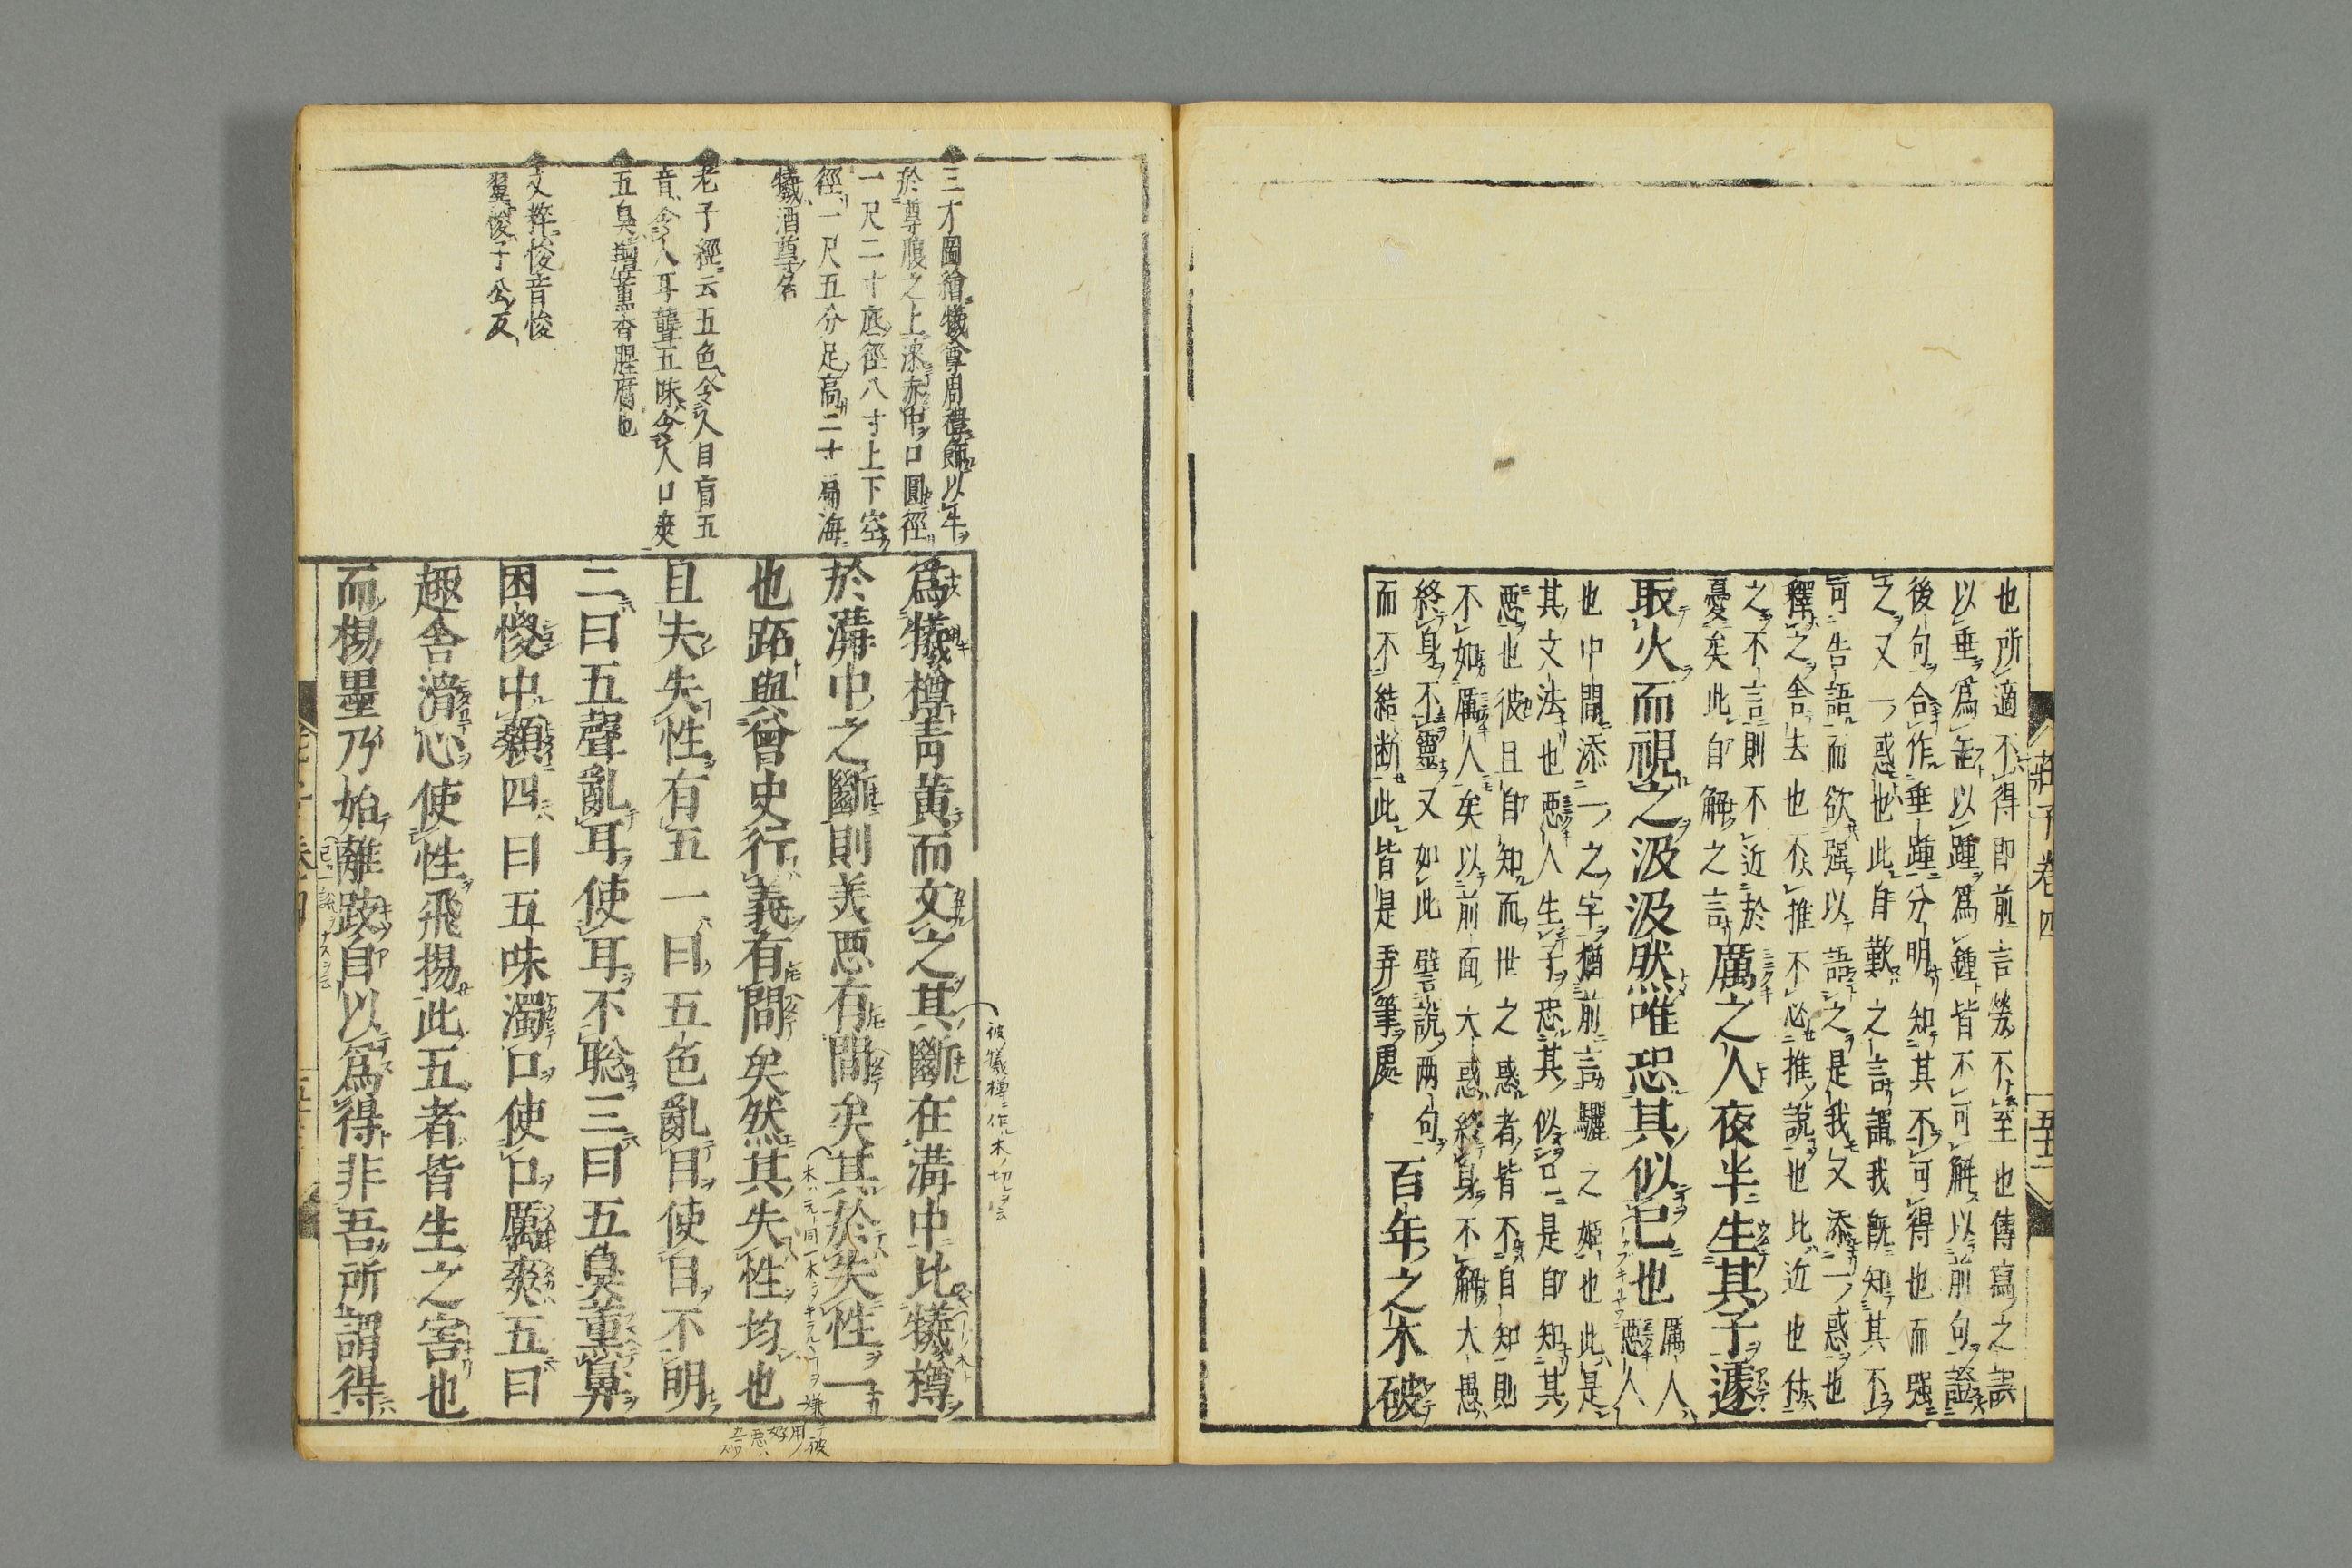 莊子卷四
五十一
也所適不得即前言勞不至也傳寫之誤
以垂爲缶以踵爲鍾皆不可解以前句證
後句合作垂踵分明知其不可得也而强
之又一惑也此自歎之言謂我既知其不
可告語而欲强以語之是我又添一惑也
釋之舍去也不推不必推說也比近也付
之不言則不近於
憂矣此自解之言厲之人夜半生其子遽
取火而視之汲汲然唯恐其似己也厲人惡人
也中間添一之字猶前言驪之姬也此是
其文法也惡人生子恐其似己是自知其
惡也彼且自知而世之惑者皆不自知則
不如厲人矣以前面大惑終身不解大愚
終身不靈又如此譬說两句百年之木破
而不結断此皆是弄筆處
三才圖繪犧尊周禮飾以牛
於尊腹之上漆赤中口圓徑
一尺二寸底徑八寸上下空
徑一尺五分足高二寸
犧酒尊名
老子經云五色令人目盲五
音令人耳聾五味令人口爽
五臭羶薰香腥腐也
文粹惾音惾
翼惾子公反
爲犧樽青黃而文之其斷在溝中比犧樽
於溝中之斷則美惡有間矣其於失性一
也跖與曾史行義有間矣然其失性均也
且夫失性有五一曰五色亂目使目不明
二曰五聲亂耳使耳不聡三曰五臭薰鼻
困惾中顙四曰五味濁口使口厲爽五曰
趣舍滑心使性飛揚此五者皆生之害也
而楊墨乃始離跂自以爲得非吾所謂得
彼犧樽ニ作ル木ノ切レヲ云